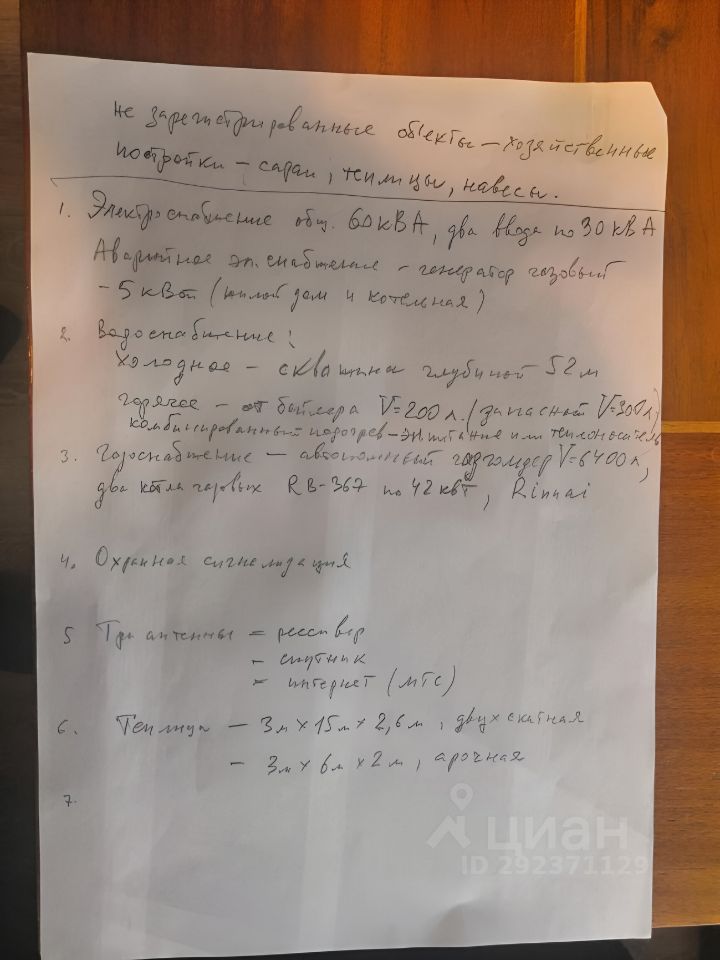 не зарегистрированные объекты – хозяйственные
постройки – сараи, теплицы, навесы.
1. Электроснабжение общ. 60 кВА, два ввода по 30 кВА
Аварийное эл. снабжение – генератор газовый
– 5 кВт (жилой дом и котельная)
2. Водоснабжение:
холодное – скважина глубиной 52 м
горячее – от бойлера V=200 л. (запасной V=300 л)
комбинированный подогрев – эл. питание или теплоноситель
3. Газоснабжение – автономный газгольдер V=6400 л,
два котла газовых RB-367 по 42 квт, Rinnai
4. Охранная сигнализация
5 Три антенны = рессивер
– спутник
= интернет (МТС)
6. Теплица – 3м х 15м х 2,6м, двухскатная
– 3м х 6м х 2м, арочная
7.
циан
ID 292371129